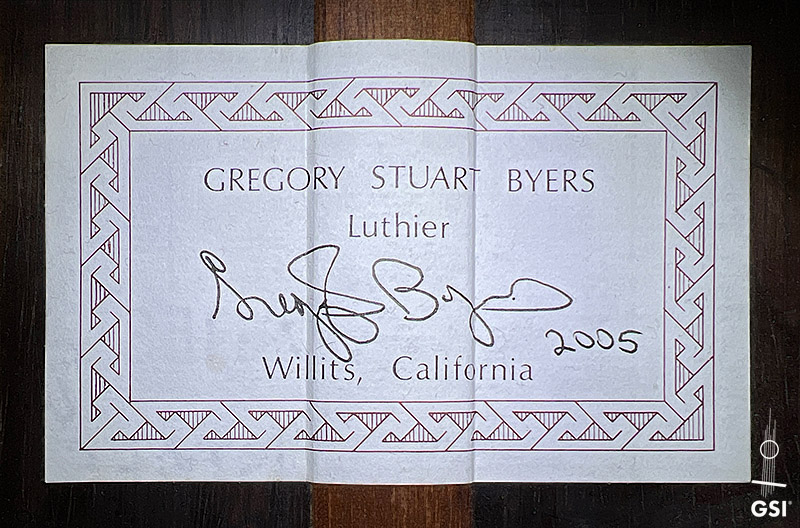 GREGORY STUART BYERS
Luthier
Gregory Byers
2005
Willits, California
GSI